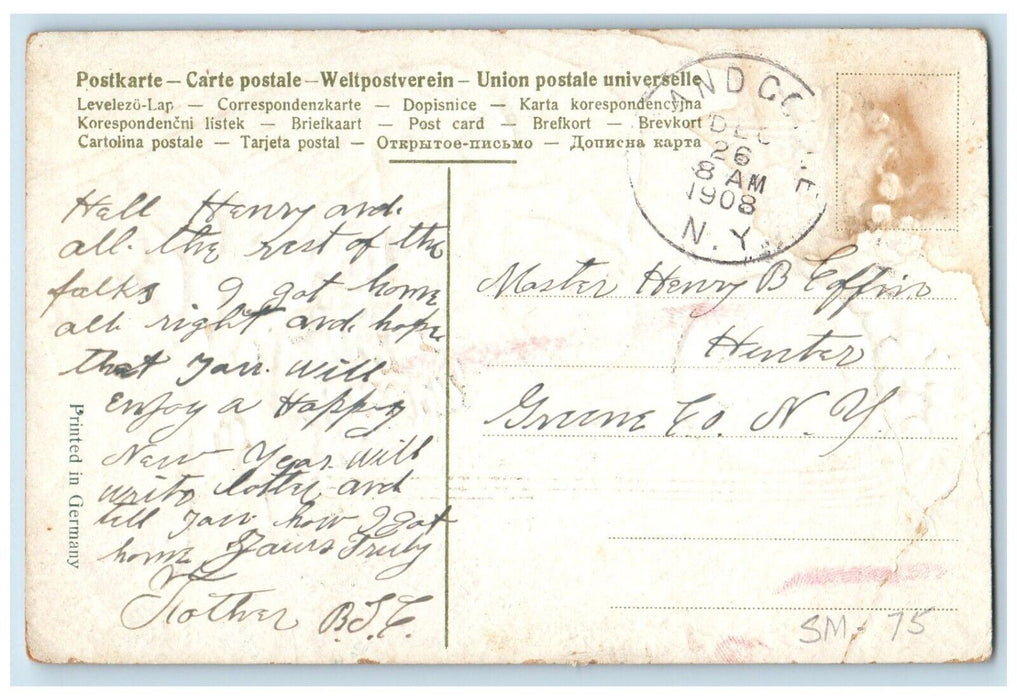 Postkarte – Carte postale – Weltpostverein – Union postale universelle
Levelezö-Lap — Correspondenzkarte — Dopisnice — Karta korespondencyjna
Korespondenčni listek — Briefkaart — Post card — Brefkort — Brevkort
Cartolina postale — Tarjeta postal — Открытое-письмо — Дописна карта
AND CO
DEC
26
8 AM
1908
N.Y.
Hell Henry and
all the rest of the
folks I got home
all right and hope
that you will
enjoy a Happy
New Year will
write and
tell you how I got
home Yours Truly
B.T.C.
Master Henry B Coffin
Hunter
Greene Co. N.Y.
Printed in Germany
SM-75